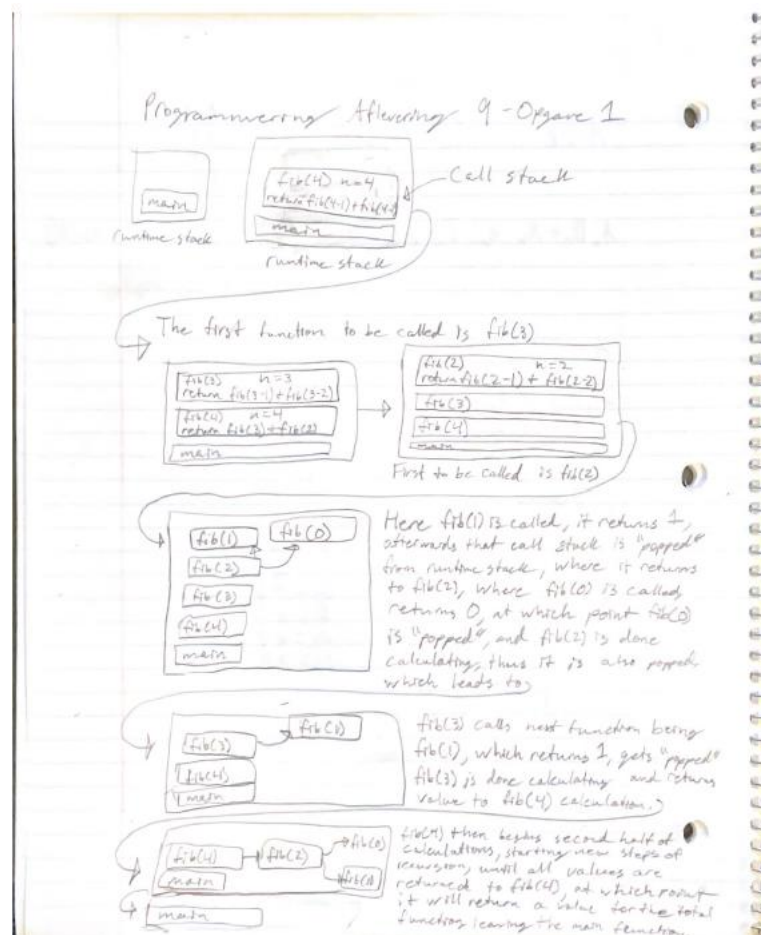 Programmering Aflevering 9 - Opgave 1
main
runtime stack
fib(4) n=4
return fib(4-1)+fib(4-2)
main
runtime stack
Call stack
The first function to be called is fib(3)
fib(3) n=3
return fib(3-1)+fib(3-2)
fib(4) n=4
return fib(3)+fib(2)
main
fib(2) n=2
return fib(2-1) + fib(2-2)
fib(3)
fib(4)
main
First to be called is fib(2)
fib(1) fib(0)
fib(2)
fib(3)
fib(4)
main
Here fib(1) is called, it returns 1,
afterwards that call stack is "popped"
from runtime stack, where it returns
to fib(2), where fib(0) is called,
returns 0, at which point fib(0)
is "popped", and fib(2) is done
calculating, thus it is also popped,
which leads to
fib(1)
fib(3)
fib(4)
main
fib(3) calls next function being
fib(1), which returns 1, gets "popped"
fib(3) is done calculating and returns
value to fib(4) calculation.
fib(4) fib(2) fib(0)
main
main
fib(4) then begins second half of
calculations, starting new steps of
recursion, until all values are
returned to fib(4), at which point
it will return a value for the total
function leaving the main function